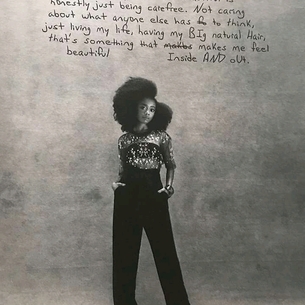 honestly just being carefree. Not caring
about what anyone else has to think,
just living my life, having my BIg natural Hair,
that's something that makes makes me feel
beautiful Inside AND out.